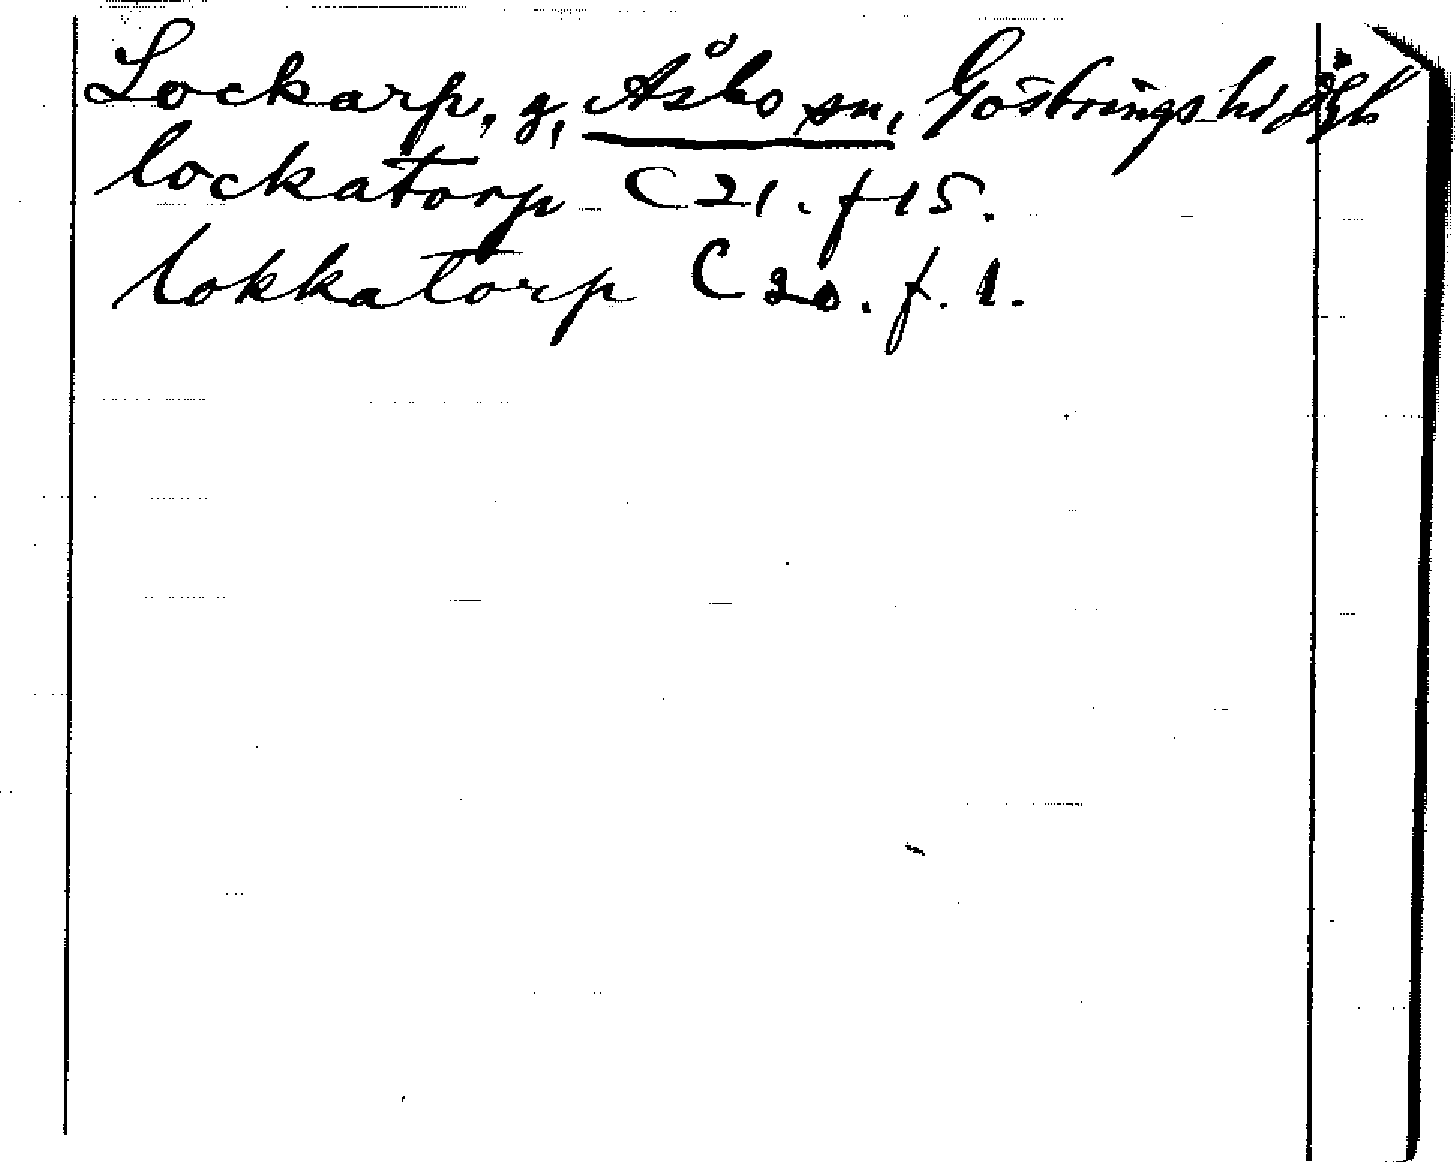 Lockarp, g, Åsbo sn, Göstrings hd, ögl
lockatorp C 21. f 15.
lokkatorp C 20. f. 1.